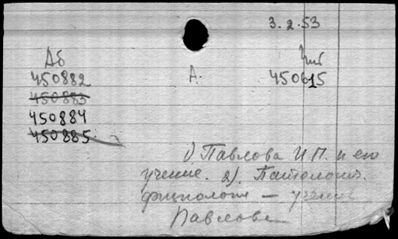 3.2.53
Аб
450882 А. 450615
450883
450884
450885.
1). Павлова И.П. и его
учение. 2). Патологич.
физиология — учение
Павлова